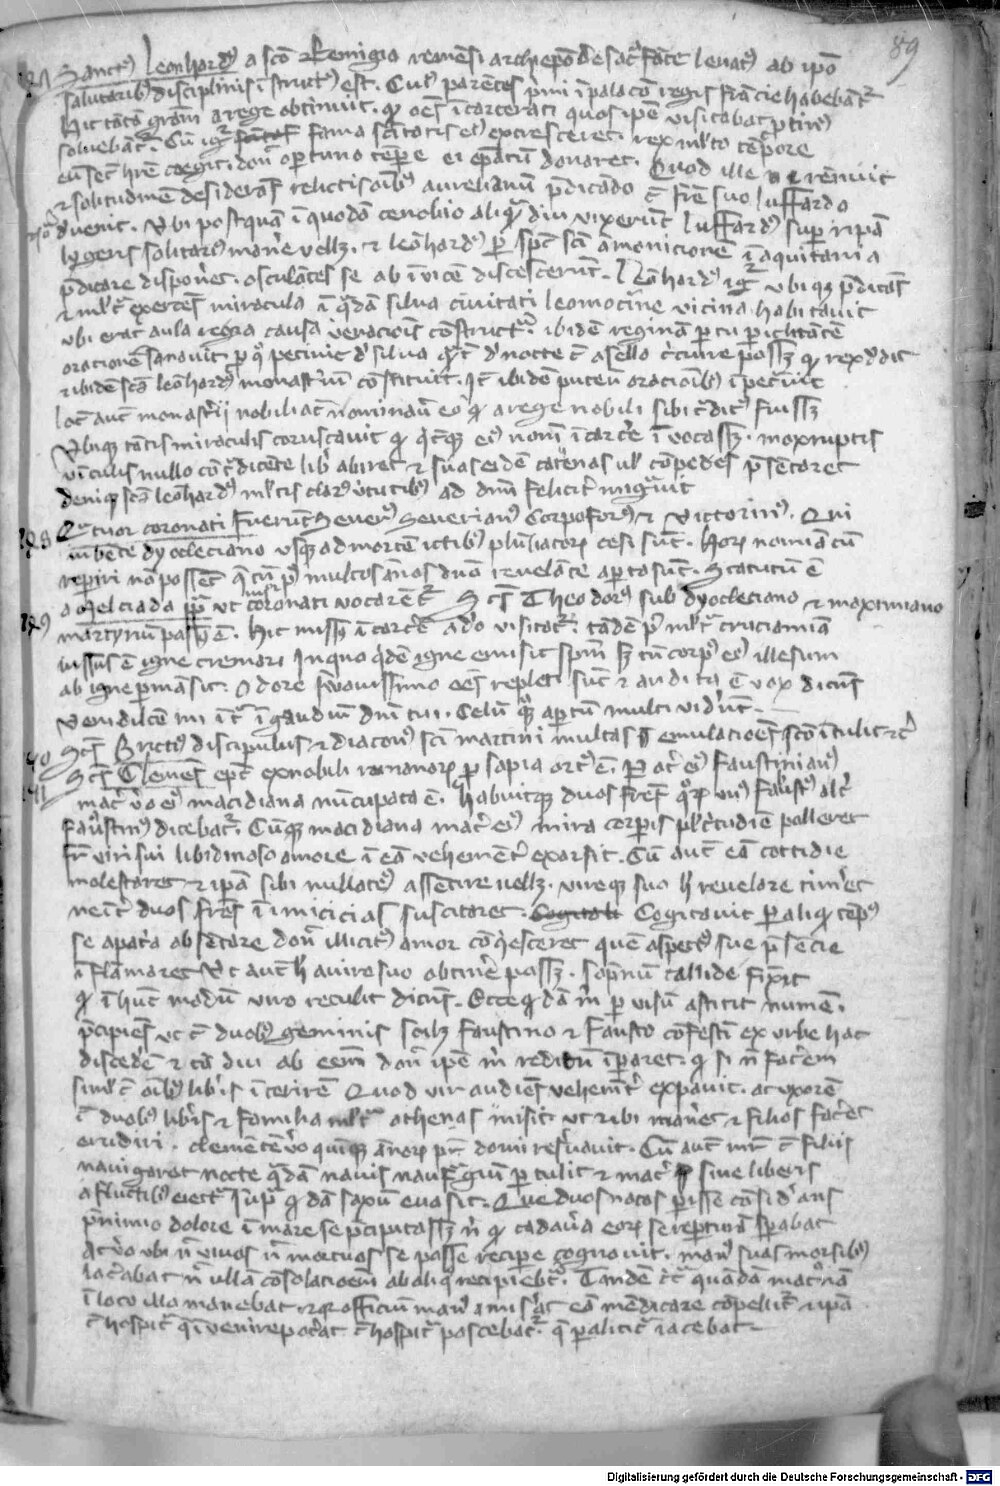 89
Sanctus Leonhardus a sco Remigio remensi archiepo de sacro fonte levatus ab ipo
salutaribus disciplinis instructus est. Cuius parentes primi in palacio regis francie habebantur
Hic tantam gram a rege obtinuit. quod oes incarcerati quos ipse visitabat protinus
solvebantur. Cum igitur fama sanctitatis eius excresceret. rex multo tempore
eum secum habere coegit. donec oportuno tempore ei epatum donaret. Quod ille renuit
et solitudinem desiderans relictis oibus aurelianum predicando cum fratre suo Luffardo
devenit. Ubi postquam in quodam cenobio aliquamdiu vixerunt Luffardus super ripam
lygeris solitarius manere vellet. et leonhardus per spiritus sancti amonicionem in aquitania
predicare disponeret. osculantes se ab invicem discesserunt. Leonhardus igitur ubique predicans
et multa exercens miracula in quadam silva civitati leomocine vicina habitavit
ubi erat aula regia causa venacionis constructa. ibidem reginam partu periclitantem
oracione sanavit. pro quo petivit de silva quantum de nocte cum asello circuire posset quod rex dedit
et ibidem scs leonhardus monasterium constituit. Item ibidem puteum oracionibus impetravit
locum autem monasterii nobiliacum nominavit eo quod a rege nobili sibi traditus fuisset
Ubique tantis miraculis coruscavit quod quicumque eius nomen in carcere invocasset. mox ruptis
vinculis nullo contradicente liber abiret et suas eidem catenas vel compedes presentaret
denique scs leonhardus multis clarus virtutibus ad dominum feliciter migravit
Quatuor coronati fuerunt Severus Severianus Corpoforus et Victorinus. Qui
iubente dyocleciano usque ad mortem ictibus plumbatorum cesi sunt. Horum nomina cum
reperiri non possent que tamen post multos annos domino revelante aperta sunt. Statutum est
a Melciada papa ut coronati vocarentur Scs Theodorus sub dyocleciano et maximiano
martyrium passus est. Hic missus in carcerem a domino visitatur. tandem post multa cruciamina
iussus est igne cremari In quo quidem igne emisit spiritum sed tamen corpus eius illesum
ab igne permansit. Odore suavissimo oes repleti sunt et audita est vox dicens
Veni dilecte mi intra in gaudium domini tui. Celum quoque apertum multi viderunt.
Scs Brictius discipulus et diaconus sci martini multas emulaciones sco intulit etc
Scs Clemens epc ex nobili romanorum prosapia ortus est. Pater eius Faustinianus
mater vero eius macidiana nuncupata est. Habuitque duos fratres quorum unus Faustus alter
faustinus dicebatur. Cumque macidiana mater eius mira corporis pulcritudine polleret
frater viri sui libidinoso amore in eam vehementer exarsit. Cum autem eam cottidie
molestaret et ipsa sibi nullatenus assentire vellet. viroque suo hoc revelare timeret
ne inter duos fratres inimicicias suscitaret. Cogitavit per aliquod tempus
se a patria absentare donec illicitus amor conquiesceret quem aspectus sue presencie
inflammaret Ut autem hoc a viro suo obtinere posset. sopnum callide finxit
quod in hunc modum viro retulit dicens. Ecce quedam mihi per visum astitit numen.
precipiens ut cum duobus geminis scilicet faustino et fausto confestim ex urbe hac
discederem et tam diu abessem donec ipse mihi reditum imperaret. quod si non facerem
simul cum ambobus liberis interirem Quod vir audiens vehementer expavit. ac uxorem
cum duobus liberis et familia multa athenas misit. ut ibi maneret et filios faceret
erudiri. clementem vero quinque annorum pater domi reservavit. Cum autem mater cum filiis
navigaret nocte quadam navis naufragium pertulit et mater sine liberis
a fluctibus eiecta super quodam saxum evasit. Que duos natos perisse considerans
pre nimio dolore in mare se precipitasset nisi quod cadavera eorum se reperturam sperabat
At vero ubi nec vivos nec mortuos se posse recipere cognovit. manus suas morsibus
lacerabat nec ullam consolacionem ab aliquo recipiebat. Tandem circa quandam matronam
in loco illo manebat et quia officium manuum amiserat eam mendicare compellitur et ipsa
cum hospita que invenire poterat cum hospita pascebatur. que paralitica iacebat.
Digitalisierung gefördert durch die Deutsche Forschungsgemeinschaft - DFG